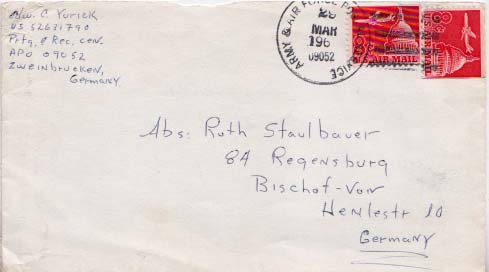 Wm. C. Yurick
US 52631790
Prtg. & Rec. cen.
APO 09052
Zweinbrucken,
Germany
ARMY & AIR FORCE
SERVICE
MAR
196
09052
US AIR MAIL
US AIR MAIL
Abs: Ruth Staulbauer
84 Regensburg
Bischof-Von
Henlestr 10
Germany